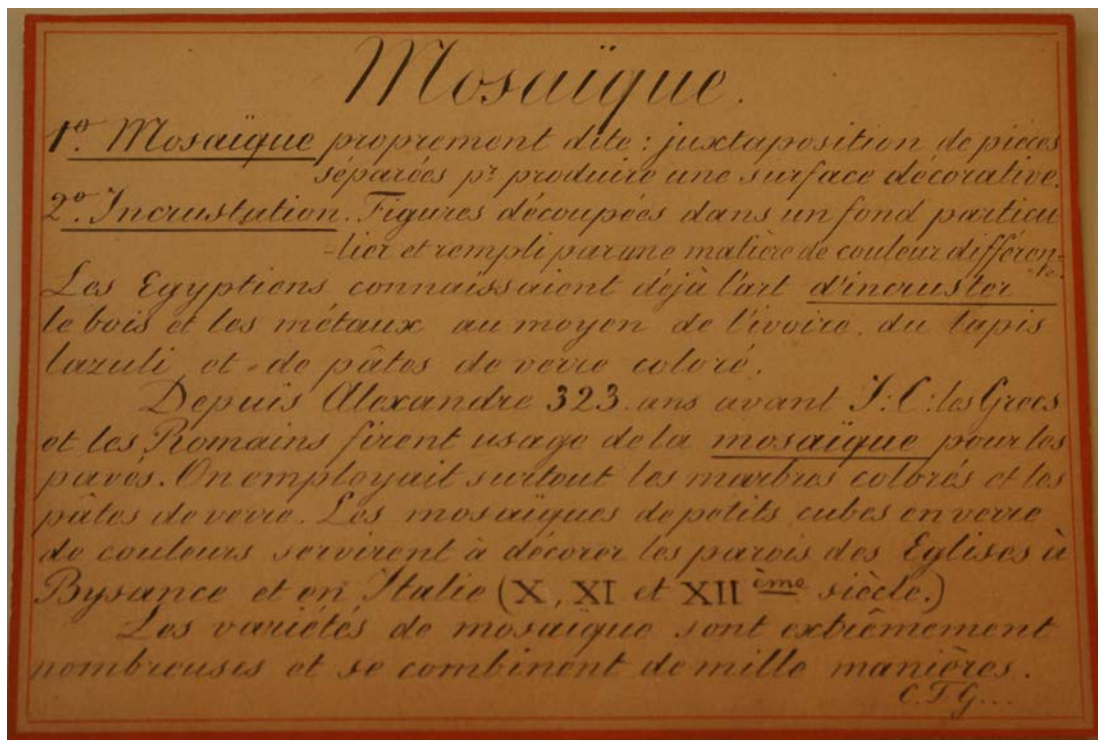 Mosaïque.
1º. Mosaïque proprement dite : juxtaposition de pièces
séparées pr produire une surface décorative.
2º. Incrustation. Figures découpées dans un fond particu
-lier et rempli par une matière de couleur différen-
te.
Les Egyptiens connaissaient déjà l'art d'incruster
le bois et les métaux au moyen de l'ivoire, du lapis
lazuli et de pâtes de verre coloré.
Depuis Alexandre 323 ans avant J: C: les Grecs
et les Romains firent usage de la mosaïque pour les
pavés. On employait surtout les marbres colorés et les
pâtes de verre. Les mosaïques de petits cubes en verre
de couleurs servirent à décorer les parois des Eglises à
Bysance et en Italie (X, XI et XII ème siècle.)
Les variétés de mosaïque sont extrêmement
nombreuses et se combinent de mille manières.
C. F. G...